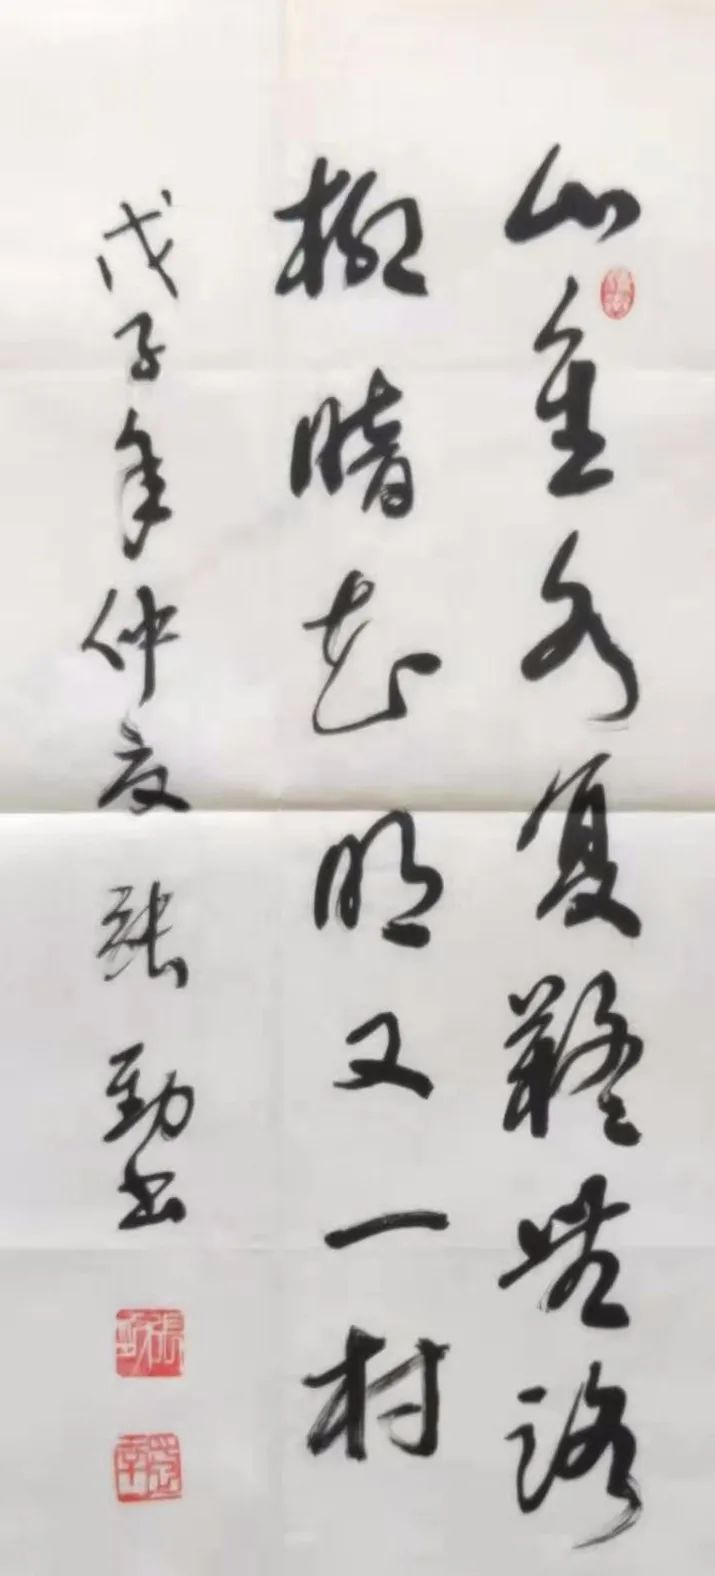 山重水复疑无路
柳暗花明又一村
戊子年仲夏 张勁书